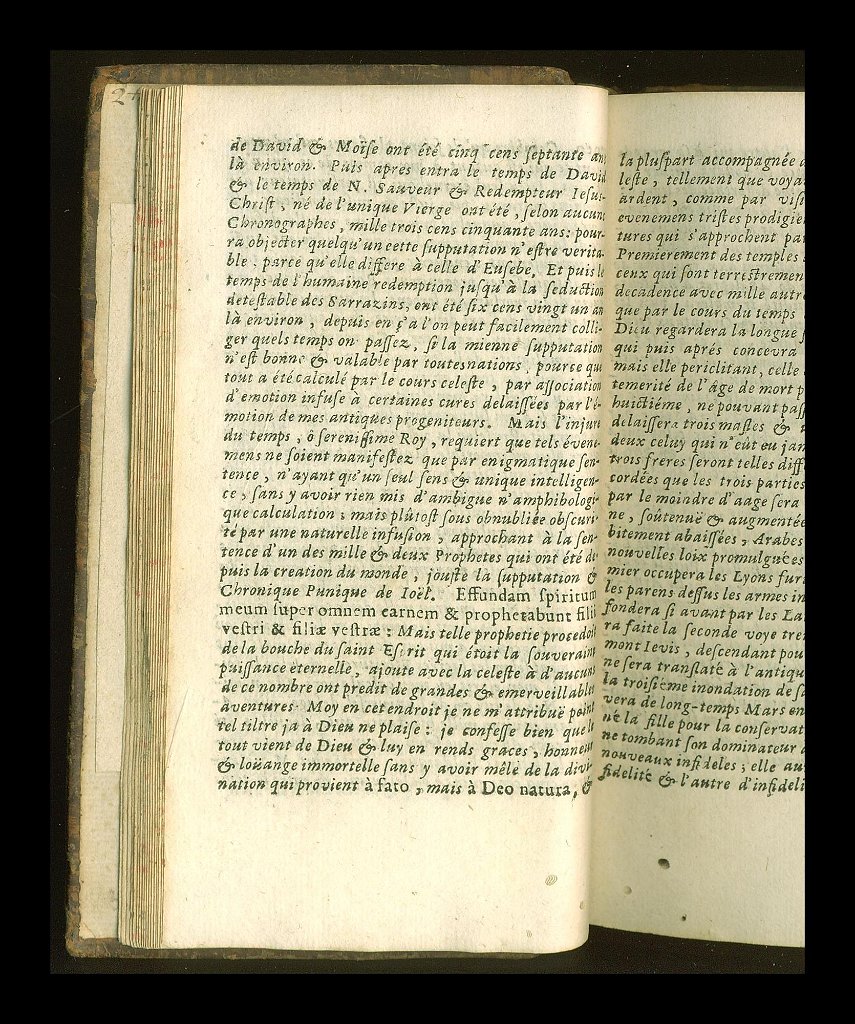 24
de David & Moïse ont été cinq cens septante an
là environ. Puis apres entra le temps de David
& le temps de N. Sauveur & Redempteur Iesus-
Christ, né de l'unique Vierge ont été, selon aucuns
Chronographes, mille trois cens cinquante ans: pour-
ra objecter quelqu'un cette supputation n'estre verita-
ble, parce qu'elle differe à celle d'Eusebe, Et puis le
temps de l'humaine redemption jusqu'à la seduction
detestable des Sarrazins, ont été six cens vingt un an
là environ, depuis en ç'a l'on peut facilement colli-
ger quels temps on passez, si la mienne supputation
n'est bonne & valable par toutes nations, pource que
tout a été calculé par le cours celeste, par association
d'emotion infuse à certaines cures delaissées par l'é-
motion de mes antiques progeniteurs. Mais l'injure
du temps, ô serenissime Roy, requiert que tels évene-
mens ne soient manifestez que par enigmatique sen-
tence, n'ayant qu'un seul sens & unique intelligen-
ce, sans y avoir rien mis d'ambigue n'amphibologi-
que calculation; mais plûtost sous obnubliée obscuri-
té par une naturelle infusion, approchant à la sen-
tence d'un des mille & deux Prophetes qui ont été de-
puis la creation du monde, jouste la supputation &
Chronique Punique de Ioël. Effundam spiritum
meum super omnem carnem & prophetabunt filii
vestri & filiæ vestræ: Mais telle prophetie procedoit
de la bouche du saint Esprit qui étoit la souveraine
puissance eternelle, ajoute avec la celeste à d'aucuns
de ce nombre ont predit de grandes & emerveillables
aventures Moy en cet endroit je ne m'attribuë point
tel tiltre ja à Dieu ne plaise: je confesse bien que le
tout vient de Dieu & luy en rends graces, honneur
& loüange immortelle sans y avoir mêlé de la divi-
nation qui provient à fato, mais à Deo natura, &
la pluspart accompagnée
leste, tellement que voya
ardent, comme par
evenemens tristes prodigie
tures qui s'approchent
Premierement des temples
ceux qui sont terrestremen
decadence avec mille autre
que par le cours du temps
Dieu regardera la longue
qui puis aprés concevra
mais elle periclitant, celle
temerité de l'âge de mort
huictiéme, ne pouvant
delaissera trois masles &
deux celuy qui n'eût eu
trois freres seront telles
cordées que les trois parties
par le moindre d'aage sera
ne, soûtenuë & augmentée
bitement abaissées, Arabes
nouvelles loix promulguées
mier occupera les Lyons
les parens dessus les armes
fondera si avant par les
ra faite la seconde voye
mont Ievis, descendant
ne sera translaté à l'antiqu
la troisiéme inondation de
vera de long-temps Mars en
né la fille pour la conservat
ne tombant son dominateur
nouveaux infideles; elle
fidelité & l'autre d'infideli